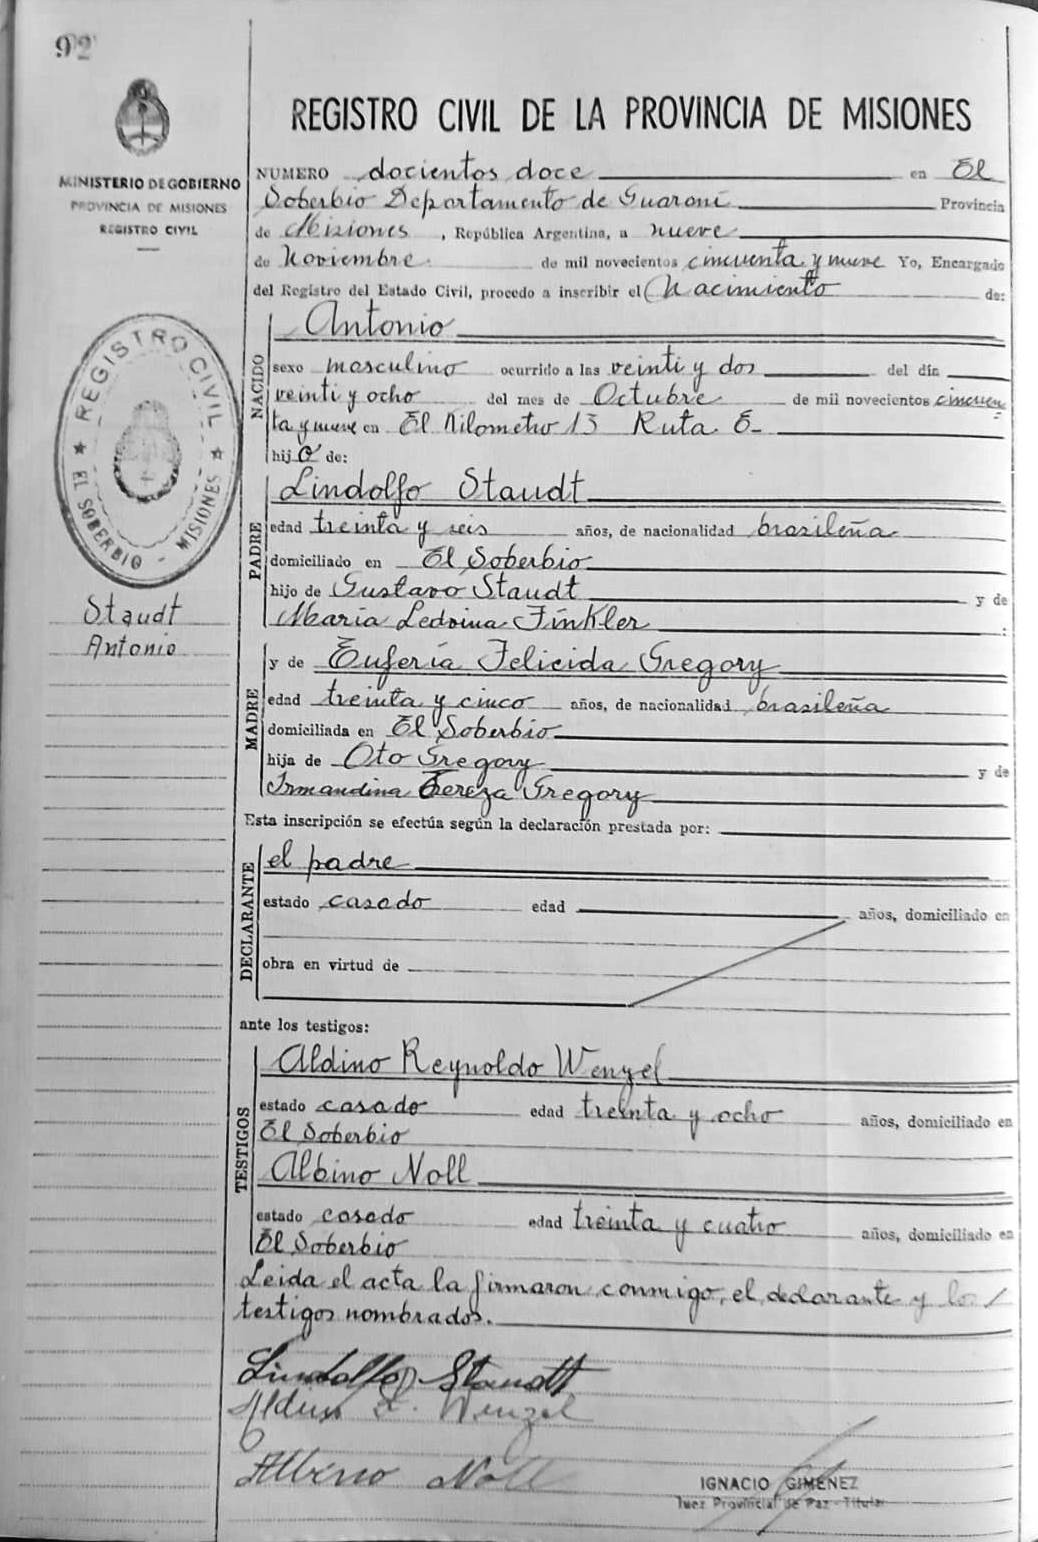 92
MINISTERIO DE GOBIERNO
PROVINCIA DE MISIONES
REGISTRO CIVIL
REGISTRO CIVIL
EL SOBERBIO - MISIONES
Staudt
Antonio
REGISTRO CIVIL DE LA PROVINCIA DE MISIONES
NUMERO docientos doce en El
Soberbio Departamento de Guaraní Provincia
de Misiones, República Argentina, a nueve
de Noviembre de mil novecientos cincuenta y nueve Yo, Encargado
del Registro del Estado Civil, procedo a inscribir el Nacimiento de:
NACIDO
Antonio
sexo masculino ocurrido a las veinti y dos del día
veinti y ocho del mes de Octubre de mil novecientos cincuen
ta y nueve en El Kilometro 13 Ruta 6-
hijo de:
PADRE
Lindolfo Staudt
edad treinta y seis años, de nacionalidad brasileña
domiciliado en El Soberbio
hijo de Gustavo Staudt y de
María Ledvina Finkler :
MADRE
y de Euferia Felicida Gregory
edad treinta y cinco años, de nacionalidad brasileña
domiciliada en El Soberbio
hija de Oto Gregory y de
Irmandina Tereza Gregory
Esta inscripción se efectúa según la declaración prestada por:
DECLARANTE
el padre
estado casado edad años, domiciliado en
obra en virtud de
ante los testigos:
TESTIGOS
Aldino Reynoldo Wenzel
estado casado edad treinta y ocho años, domiciliado en
El Soberbio
Albino Noll
estado casado edad treinta y cuatro años, domiciliado en
El Soberbio
Leida el acta la firmaron conmigo, el declarante y los
testigos nombrados.
Lindolfo Staudt
Wenzel
Albino Noll
IGNACIO GIMENEZ
Juez Provincial de Paz - Titular